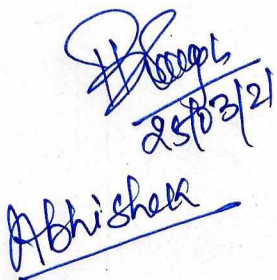 25/03/21
Abhishek